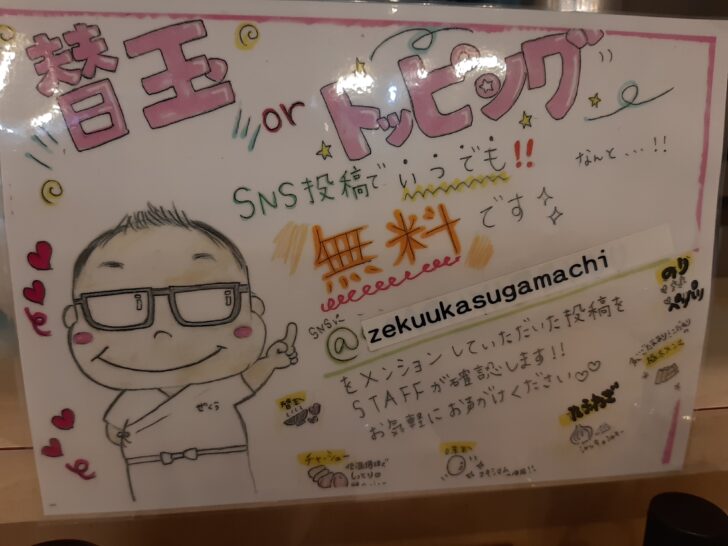 替玉 or トッピング
SNS投稿でいつでも!!
なんと…!!
無料です
SNSに
@zekuukasugamachi
をメンションしていただいた投稿を
STAFFが確認します!!
お気軽にお声がけください♡♡
ぜくう
替玉
チャーシュー
低温調理で
しっとり
たまねぎ
シャキシャキ
のり
パリパリ